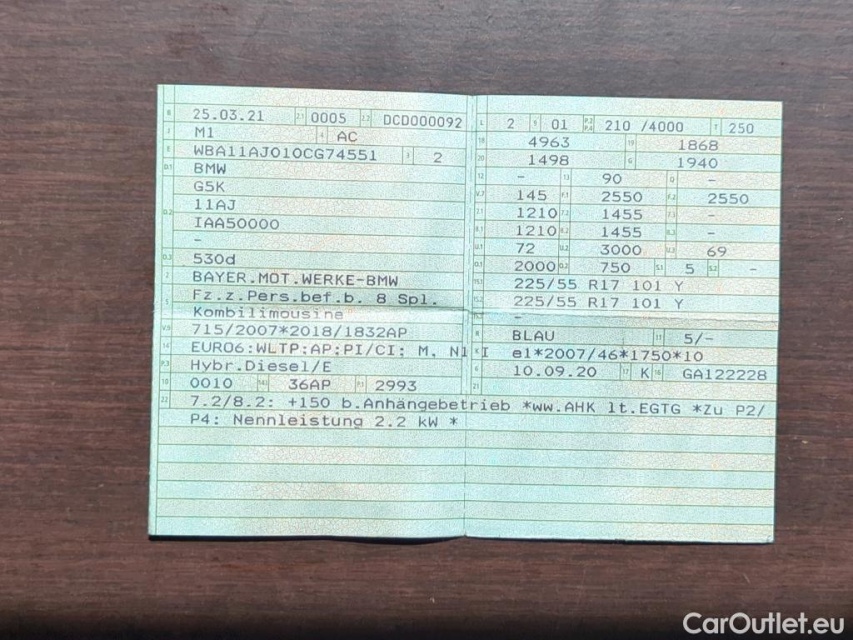 B 25.03.21 2.1 0005 2.2 DCD000092
J M1 4 AC
E WBA11AJ010CG74551 3 2
D.1 BMW
G5K
D.2 11AJ
IAA50000
-
D.3 530d
2 BAYER.MOT.WERKE-BMW
5 Fz.z.Pers.bef.b. 8 Spl.
Kombilimousine
V.9 715/2007*2018/1832AP
14 EURO6:WLTP:AP:PI/CI: M, N1 I
P.3 Hybr.Diesel/E
10 0010 14.1 36AP P.1 2993
L 2 9 01 P.2 P.4 210 /4000 T 250
18 4963 19 1868
20 1498 G 1940
12 - 13 90 Q -
V.7 145 F.1 2550 F.2 2550
7.1 1210 7.2 1455 7.3 -
8.1 1210 8.2 1455 8.3 -
U.1 72 U.2 3000 U.3 69
O.1 2000 O.2 750 S.1 5 S.2 -
15.1 225/55 R17 101 Y
15.2 225/55 R17 101 Y
15.3 -
R BLAU 11 5/-
K e1*2007/46*1750*10
6 10.09.20 17 K 16 GA122228
21
22 7.2/8.2: +150 b.Anhängebetrieb *ww.AHK lt.EGTG *Zu P2/
P4: Nennleistung 2.2 kW *
CarOutlet.eu